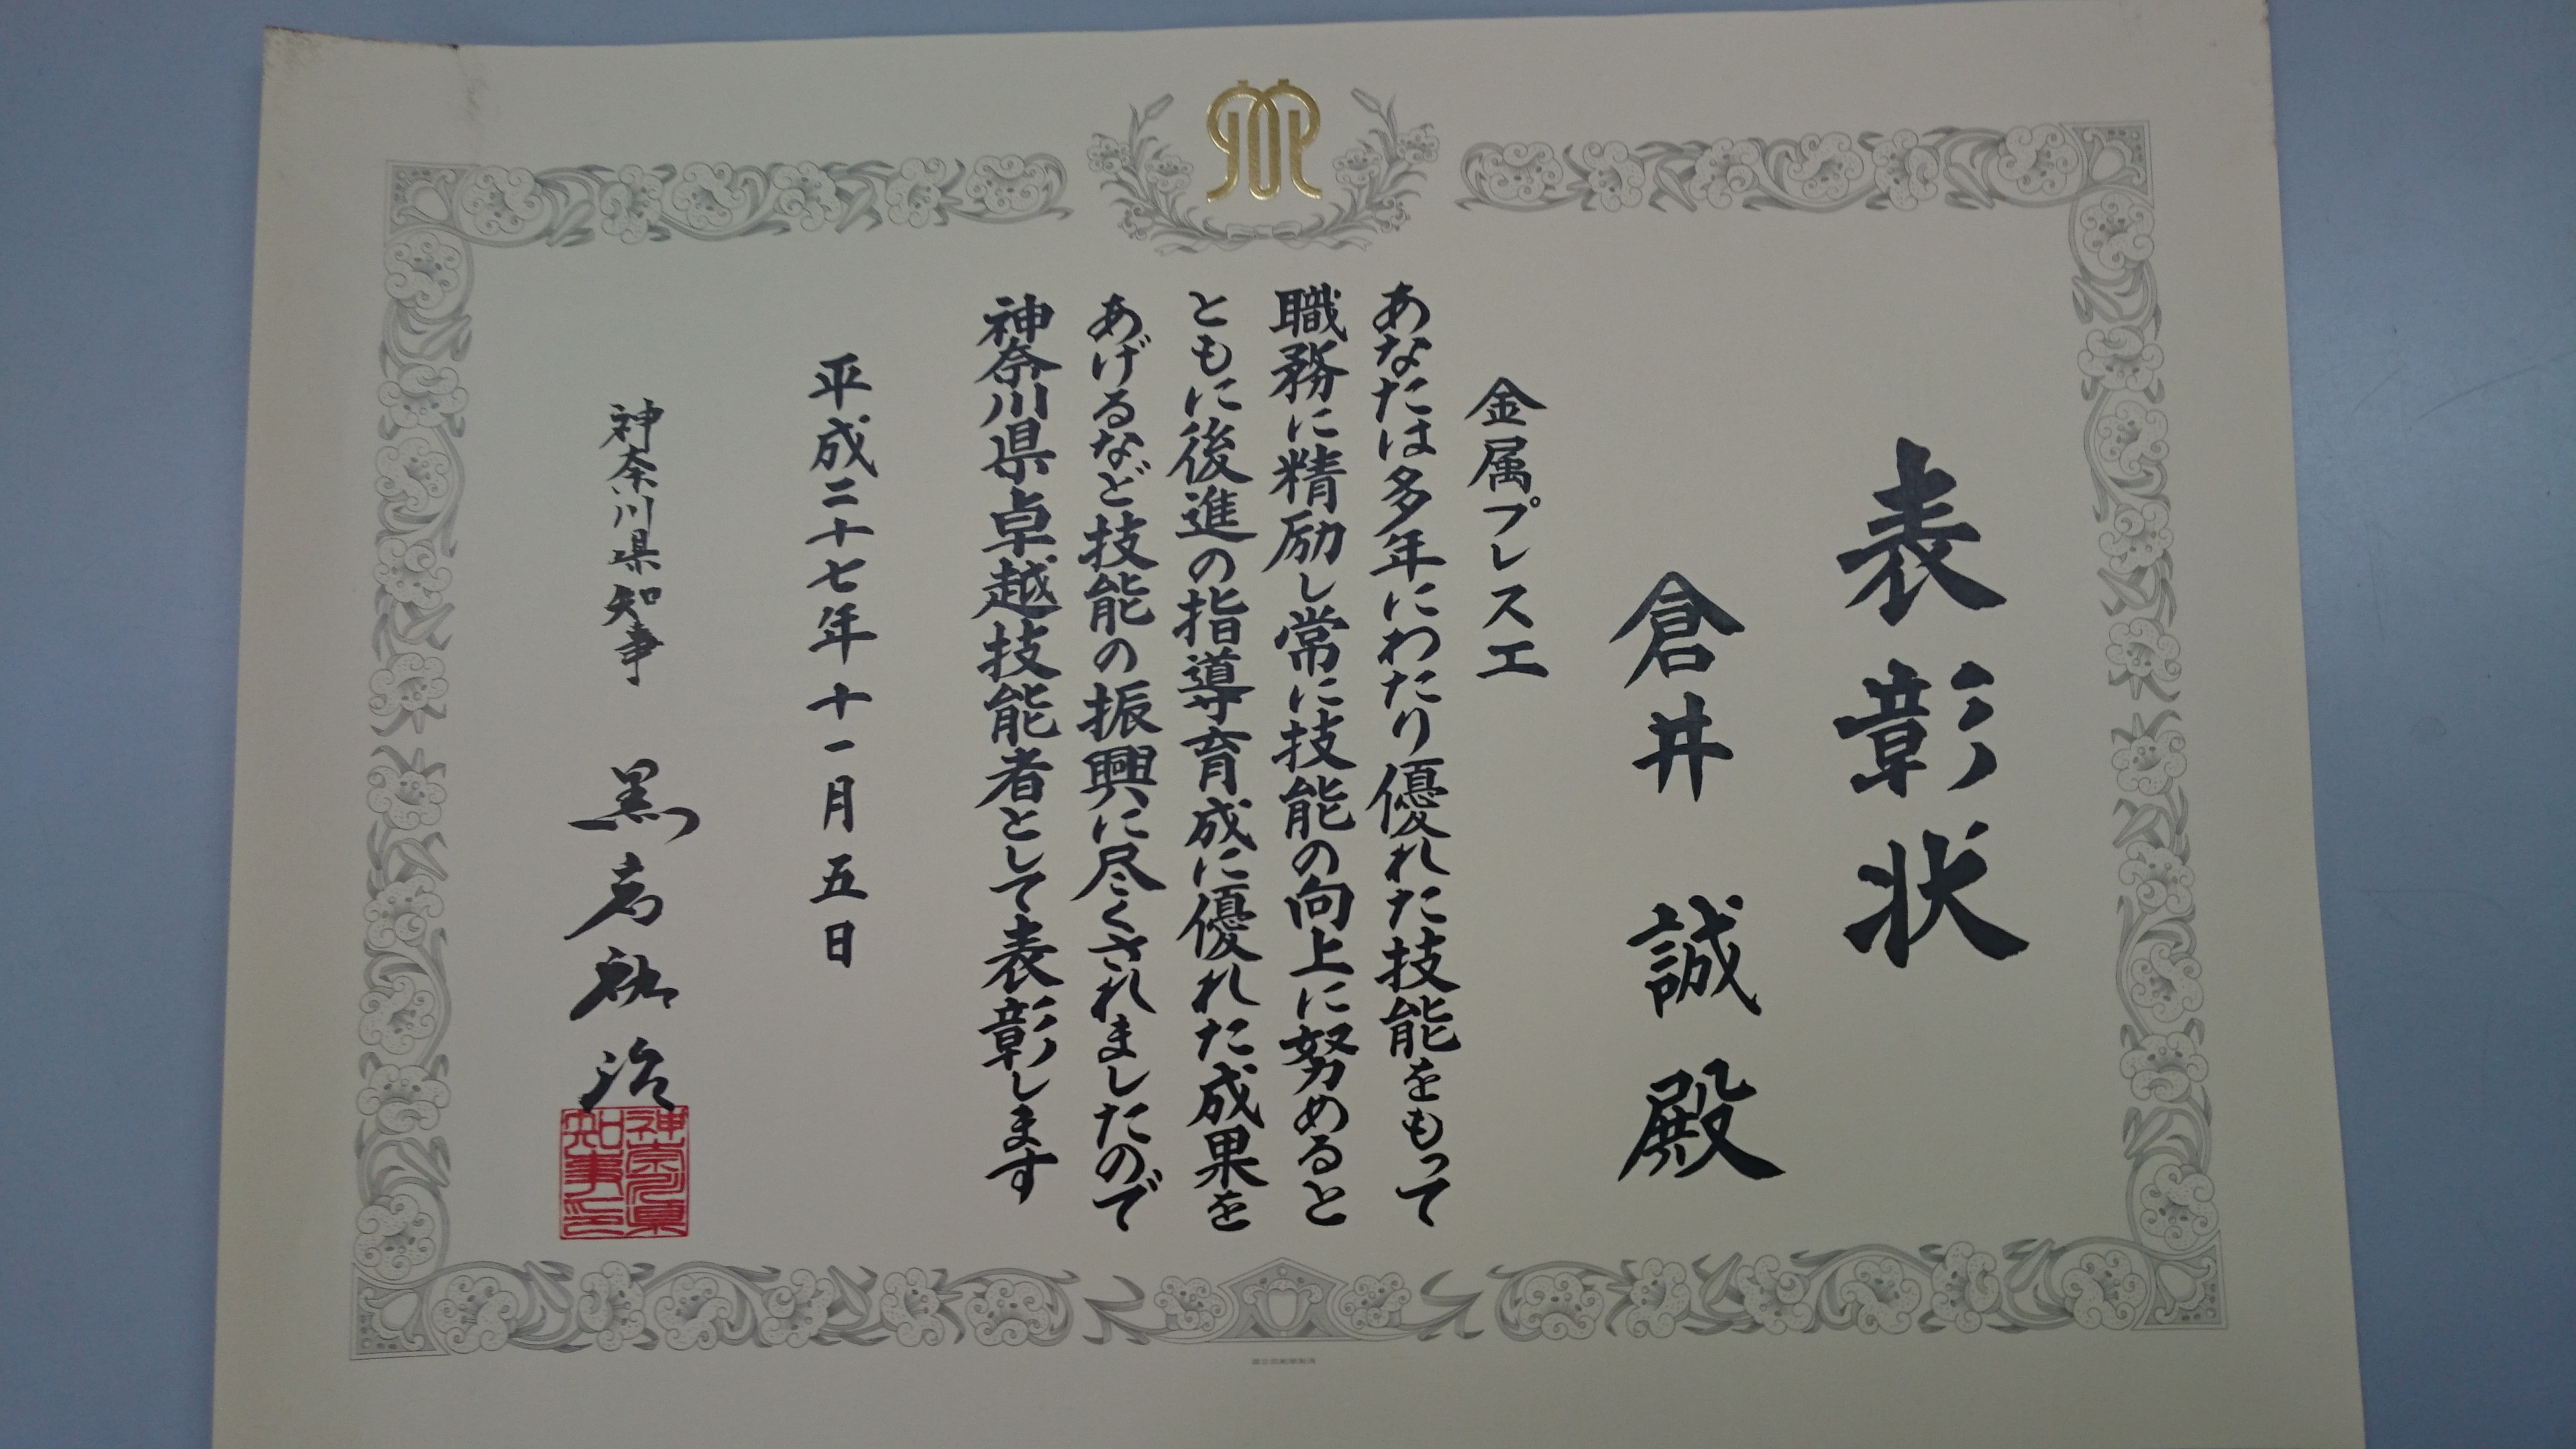 表彰状
倉井 誠 殿
金属プレス工
あなたは多年にわたり優れた技能をもって
職務に精励し常に技能の向上に努めると
ともに後進の指導育成に優れた成果を
あげるなど技能の振興に尽くされましたので
神奈川県卓越技能者として表彰します
平成二十七年十一月五日
神奈川県知事 黒岩祐治
神奈川県
知事之印